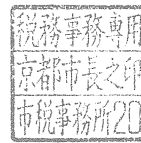 税務事務専用
京都市長之印
市税事務所20